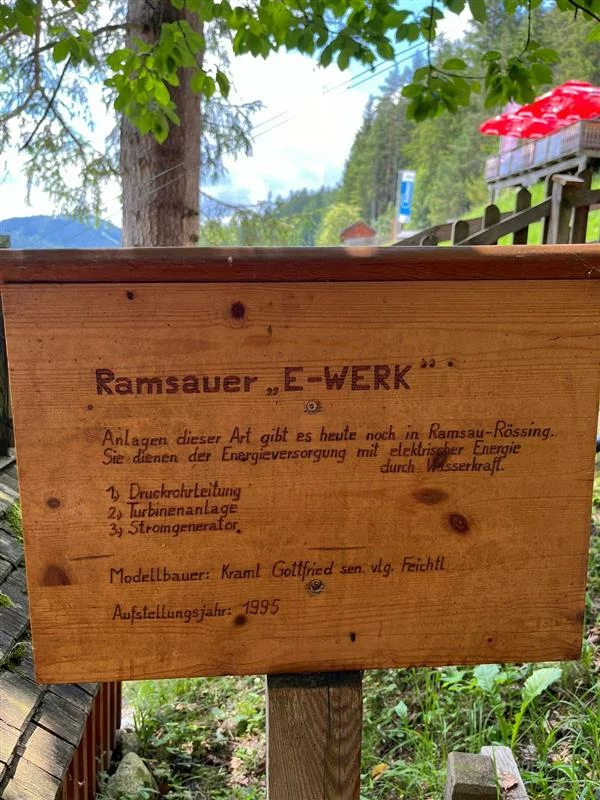 Ramsauer „E-WERK“
Anlagen dieser Art gibt es heute noch in Ramsau-Rössing.
Sie dienen der Energieversorgung mit elektrischer Energie
durch Wasserkraft.
1.) Druckrohrleitung
2.) Turbinenanlage
3.) Stromgenerator
Modellbauer: Kraml Gottfried sen. vlg. Feichtl
Aufstellungsjahr: 1995